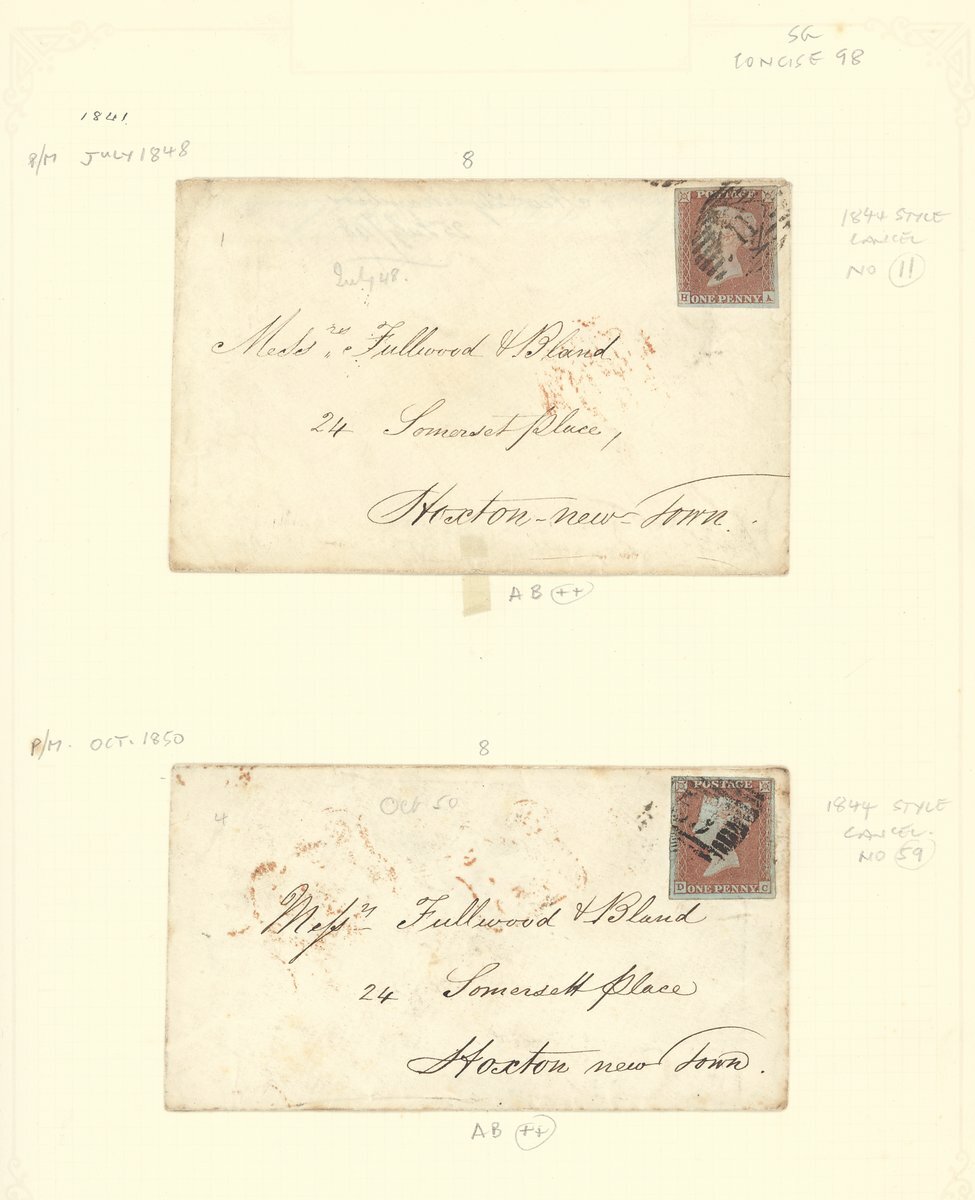 SG
CONCISE 98
1841
P/M JULY 1848
8
1
July 48.
POSTAGE
H ONE PENNY. A
1844 STYLE
CANCEL
NO 11
Messrs. Fullwood & Bland
24 Somerset Place,
Hoxton-new-Town.
AB ++
P/M. OCT. 1850
8
4
Oct 50
POSTAGE
D ONE PENNY. C
1844 STYLE
CANCEL.
NO 59
Messrs Fullwood & Bland
24 Somersett Place
Hoxton new Town.
AB ++